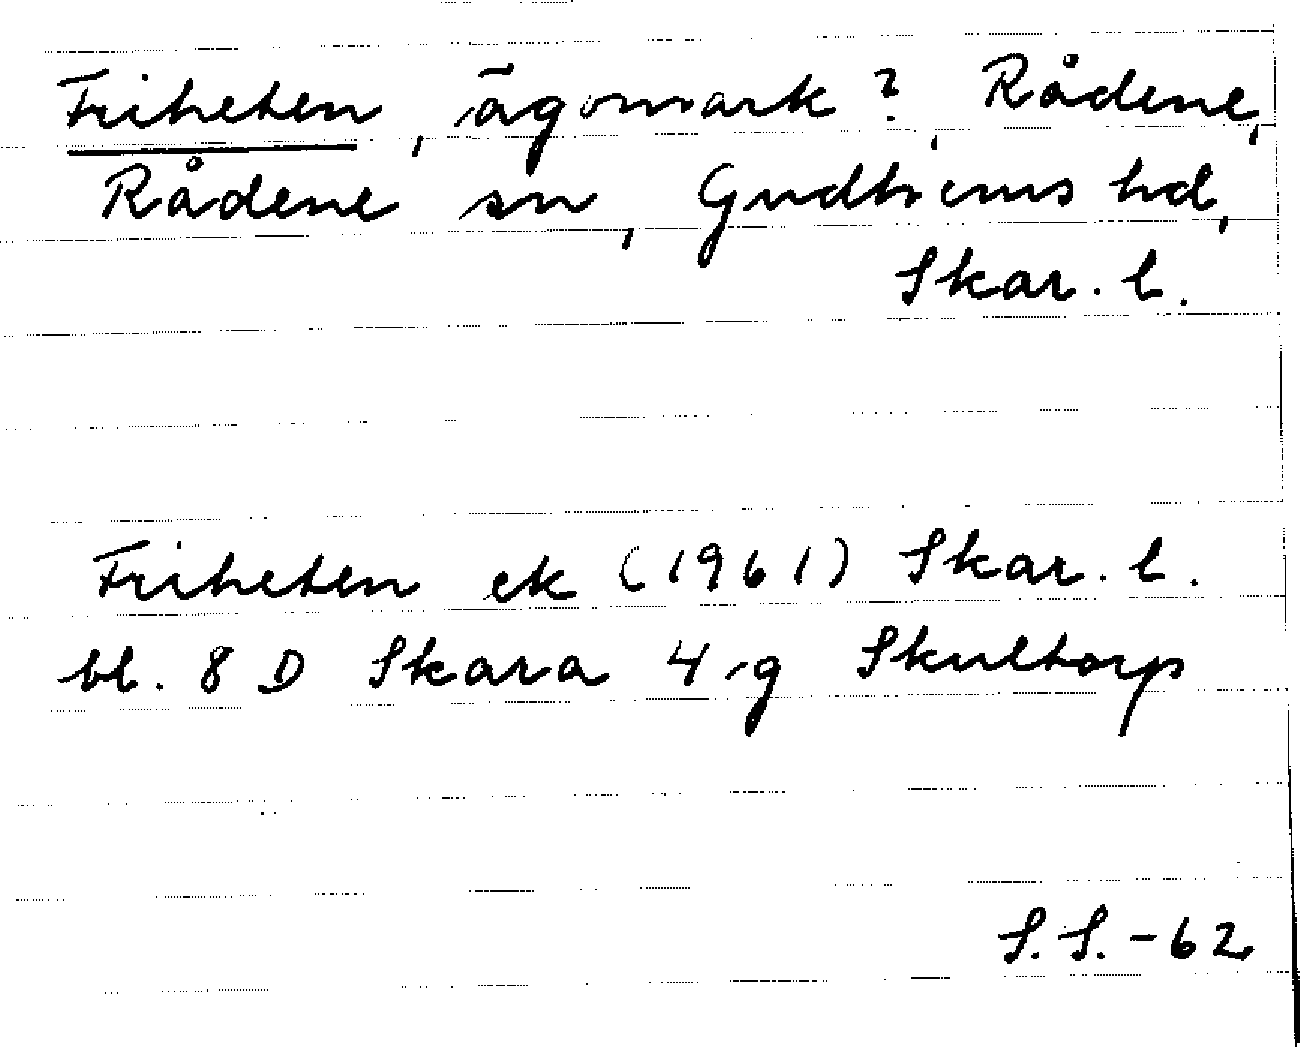 Friheten, ägomark?, Rådene,
Rådene sn, Gudhems hd,
Skar. l.
Friheten ek (1961) Skar. l.
bl. 8 D Skara 4 g Skultorp
S. S. - 62